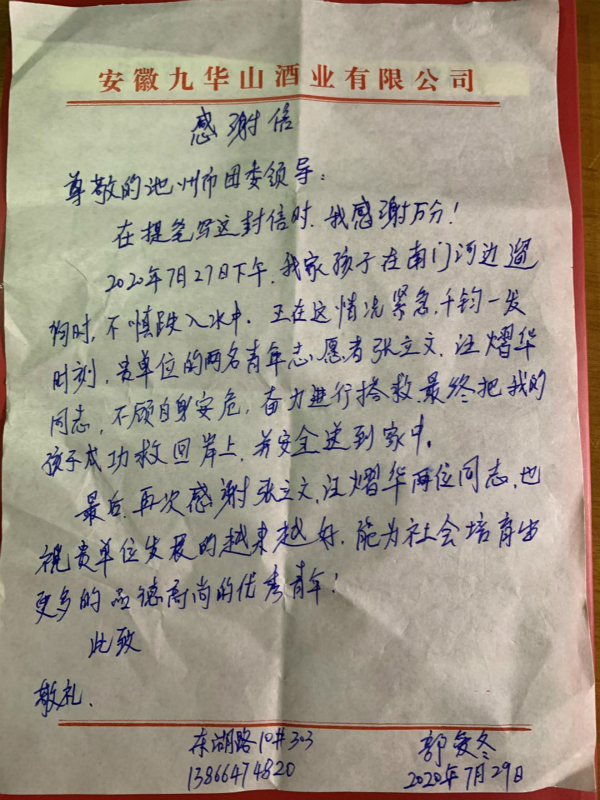 安徽九华山酒业有限公司
感谢信
尊敬的池州市团委领导：
在提笔写这封信时，我感谢万分！
2020年7月27日下午，我家孩子在南门河边遛
狗时，不慎跌入水中。正在这情况紧急，千钧一发
时刻，贵单位的两名青年志愿者张立文、汪熠华
同志，不顾自身安危，奋力进行搭救，最终把我的
孩子成功救回岸上，并安全送到家中。
最后，再次感谢张立文、汪熠华两位同志，也
祝贵单位发展的越来越好，能为社会培育出
更多的品德高尚的优秀青年！
此致
敬礼。
东湖路10#303
郭爱冬
13866474820
2020年7月29日